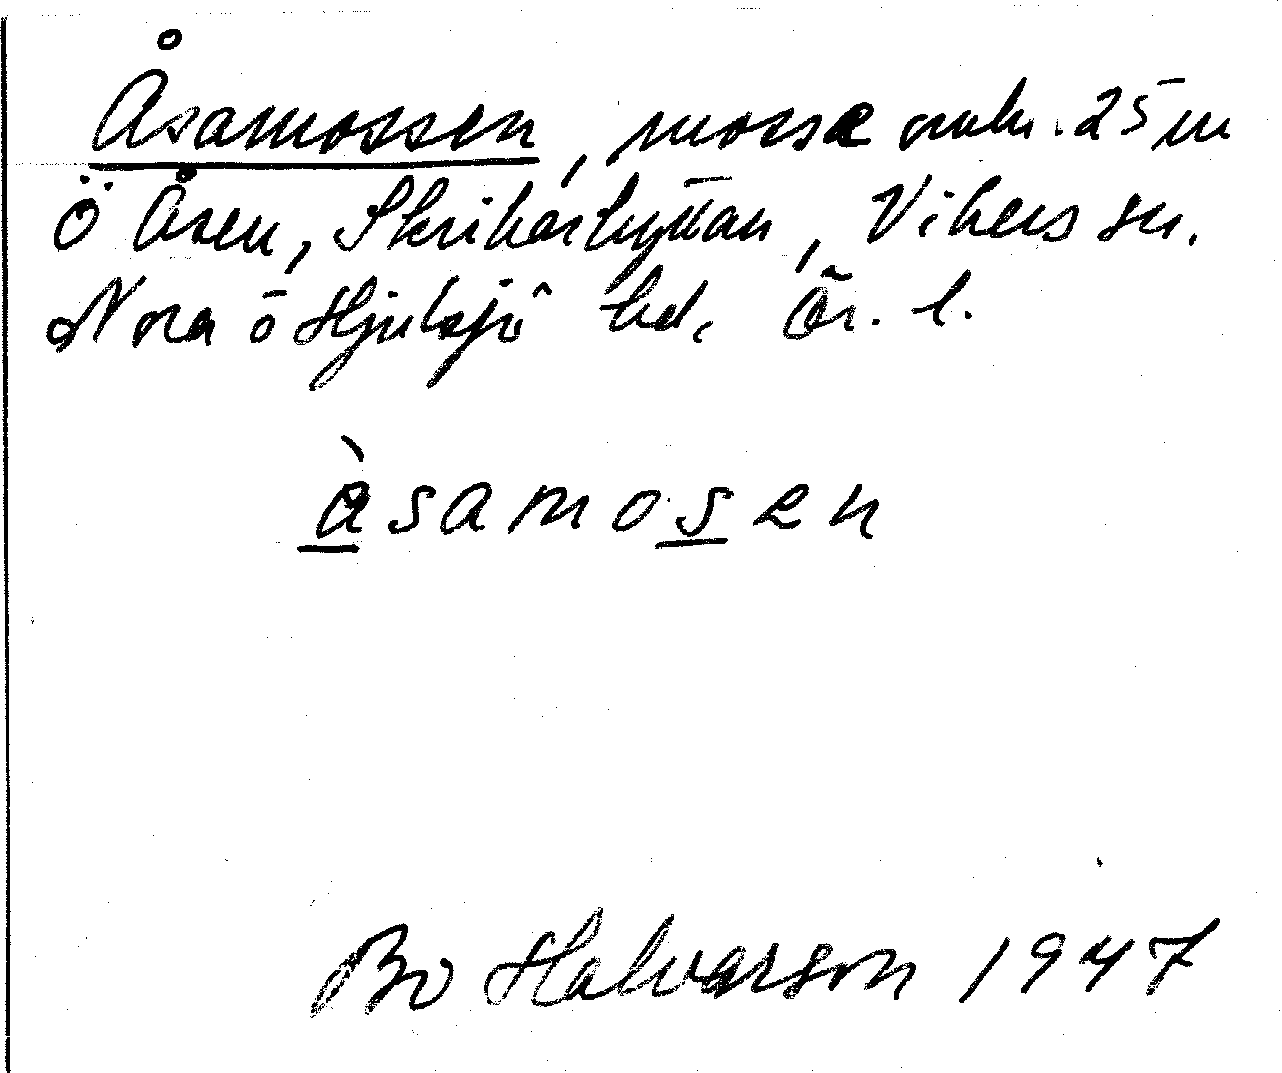 Åsamossen, mosse omkr. 25 m
Ö Åsen, Skrikarhyttan, Vikers sn.
Nora o Hjulsjö hd. Ör. l.
å̀samosen
Bo Halvarson 1947